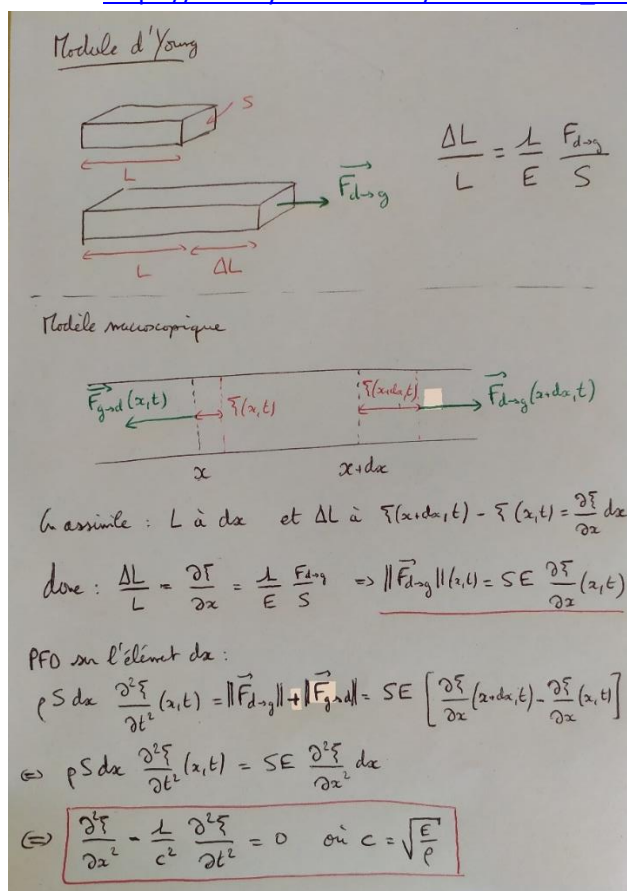 Module d'Young
S
L
ΔL/L = 1/E F_{d→g}/S
F_{d→g}
L ΔL
Modèle macroscopique
F_{g→d}(x,t) ξ(x,t) ξ(x+dx,t) F_{d→g}(x+dx,t)
x x+dx
On assimile : L à dx et ΔL à ξ(x+dx,t) - ξ(x,t) = ∂ξ/∂x dx
donc : ΔL/L = ∂ξ/∂x = 1/E F_{d→g}/S => ||F_{d→g}||(x,t) = SE ∂ξ/∂x (x,t)
PFD sur l'élémet dx :
ρ S dx ∂²ξ/∂t² (x,t) = ||F_{d→g}|| + ||F_{g→d}|| = SE [∂ξ/∂x (x+dx,t) - ∂ξ/∂x (x,t)]
⇔ ρ S dx ∂²ξ/∂t² (x,t) = SE ∂²ξ/∂x² dx
⇔ ∂²ξ/∂x² - 1/c² ∂²ξ/∂t² = 0 où c = √(E/ρ)